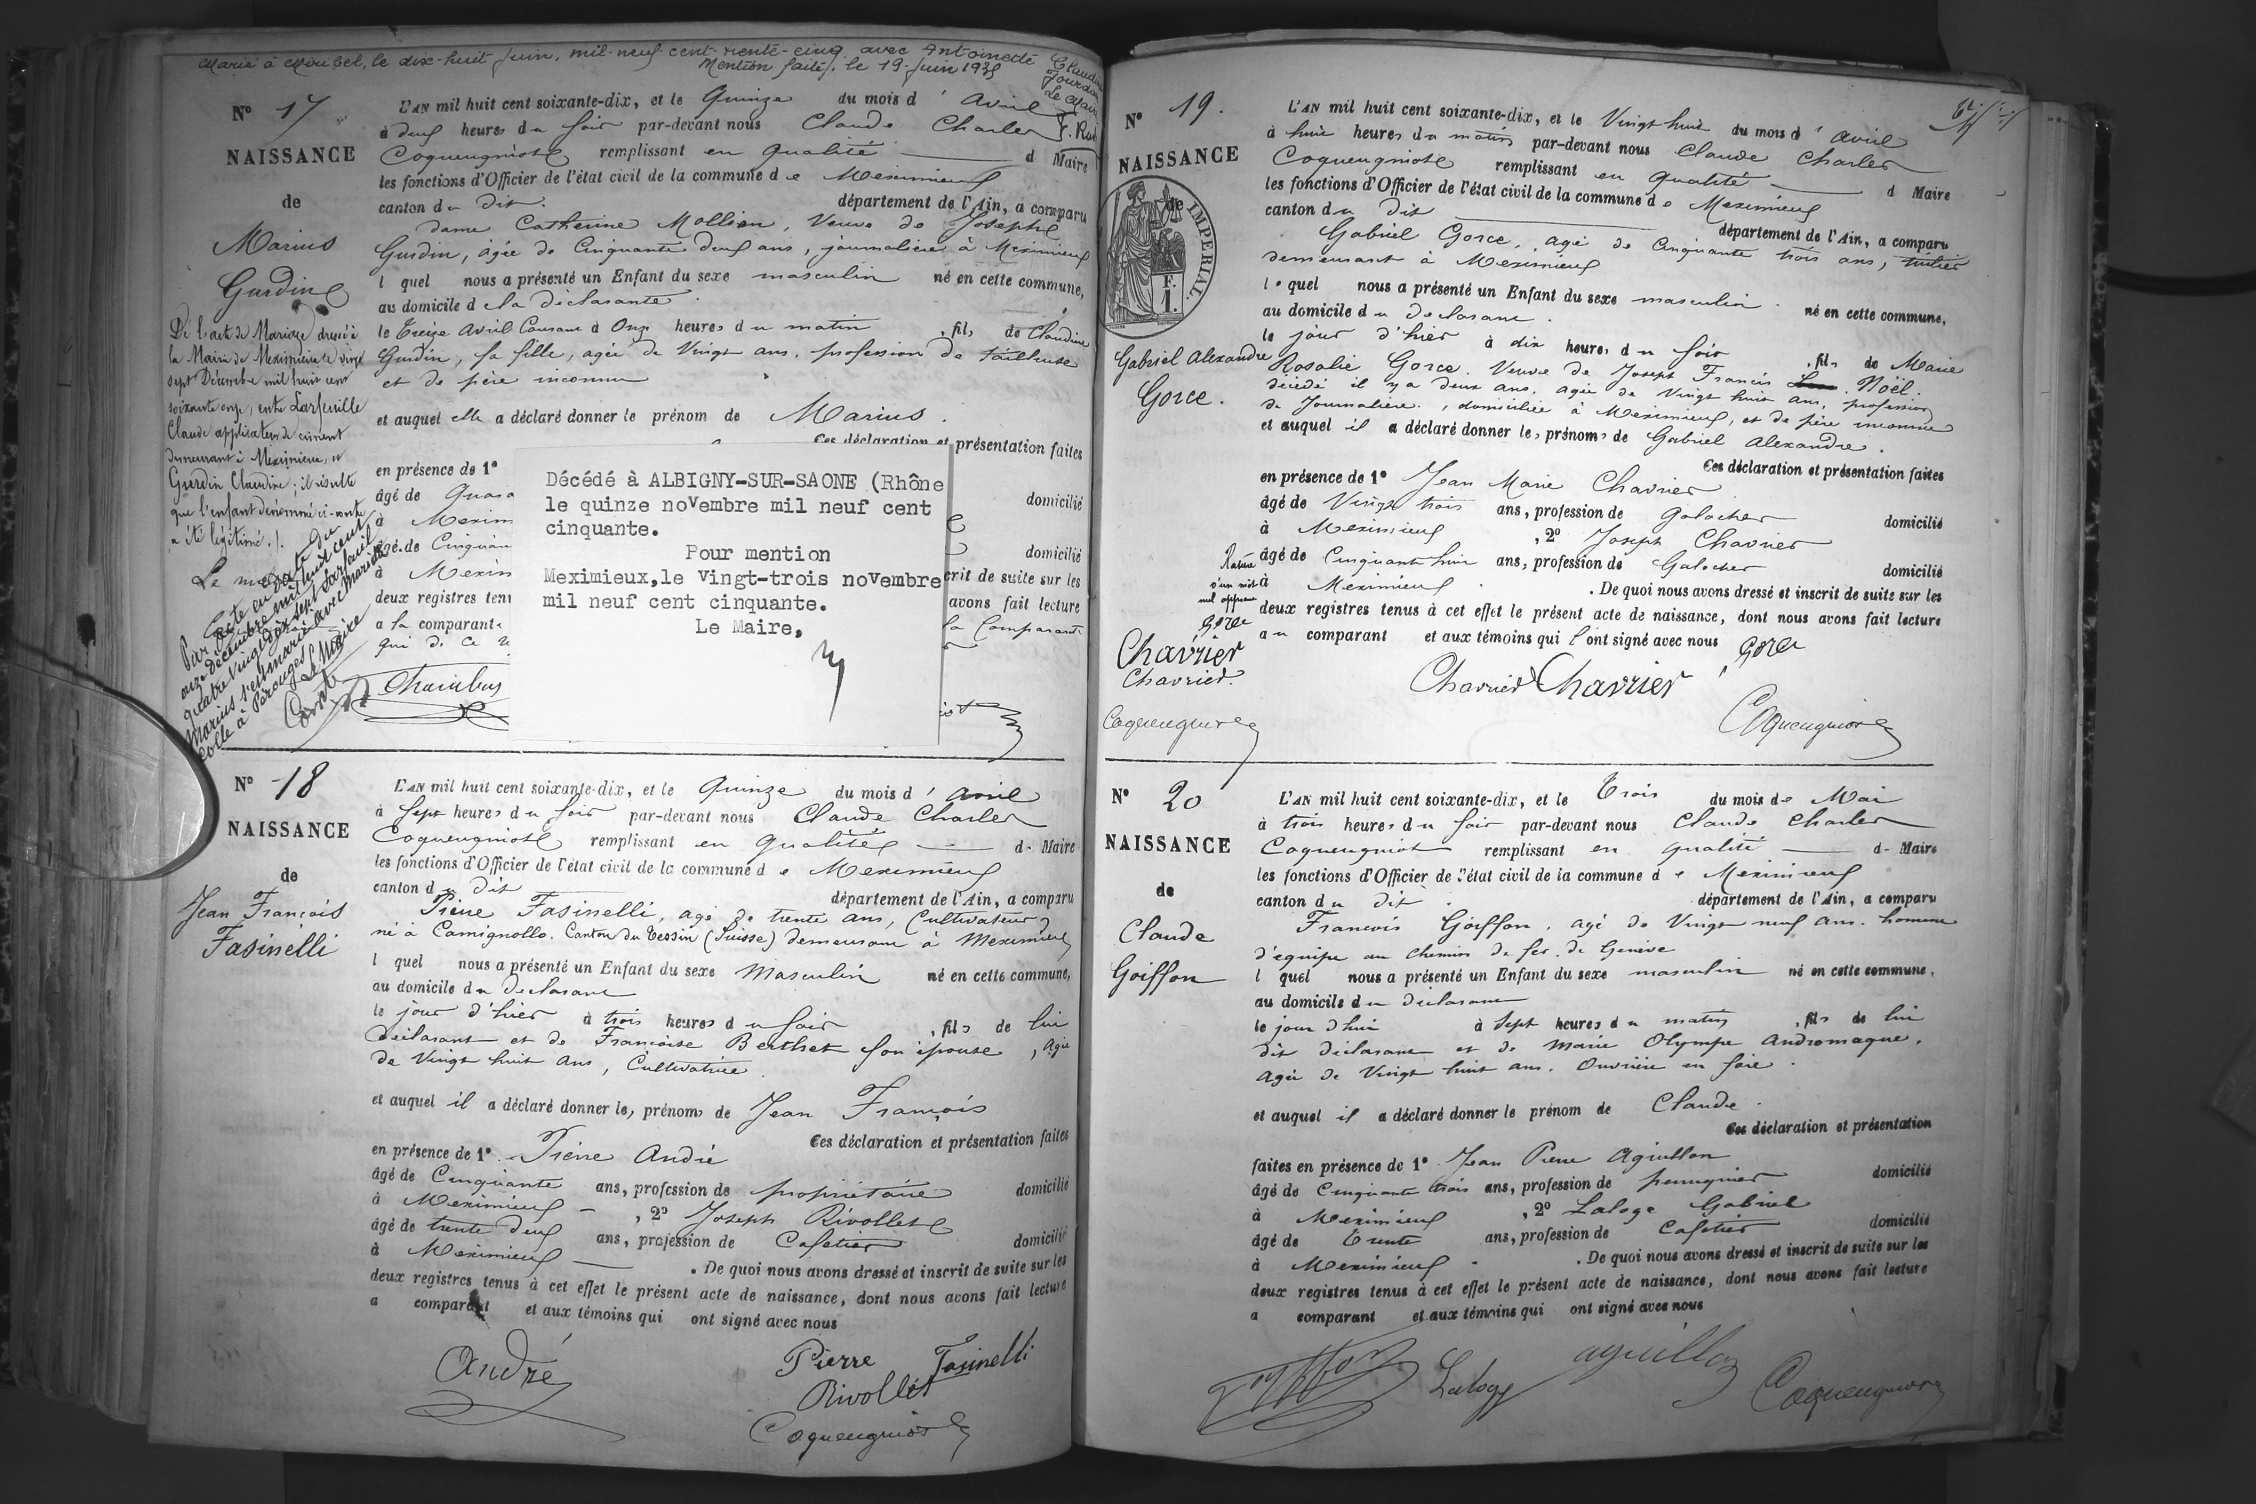 Marié à Miribel, le dix-huit Juin, mil-neuf-cent-trente-cinq avec Antoinette Claudine
Mention faite, le 19 Juin 1935
Jourdan
Le Maire
N° 17
NAISSANCE
de
Marius
Gurdin
De l'acte de Mariage dressé à
la Mairie de Meximieux le vingt
sept Décembre mil huit cent
soixante onze, entre Larfeuille
Claude applicateur de ciment
demeurant à Meximieux, et
Guerdin Claudine; il résulte
que l'enfant dénommé ci-contre
a été légitimé ./.
Le maire
Par acte en date du
onze Décembre mil huit cent
quatre vingt dix sept Larfeuille
Marius s'est marié avec
à Pérouges
Le Maire
L'AN mil huit cent soixante-dix, et le Quinze du mois d' Avril
à deux heures du soir par-devant nous Claude Charles
Coquengniot remplissant en qualité d Maire
les fonctions d'Officier de l'état civil de la commune de Meximieux
canton du dit. département de l'Ain, a comparu
dame Catherine Mollion, Veuve de Joseph
Gurdin, âgée de Cinquante deux ans, journalière à Meximieux
l quel nous a présenté un Enfant du sexe masculin né en cette commune,
au domicile de la déclarante.
le Treize Avril Courant à Onze heures du matin, fils de Claudine
Gurdin, sa fille, agée de Vingt ans, profession de tailleuse
et de père inconnu
et auquel elle a déclaré donner le prénom de Marius.
Ces déclaration et présentation faites
en présence de 1°
âgé de domicilié
à
âgé de domicilié
à Décédé à ALBIGNY-SUR-SAONE (Rhône
le quinze novembre mil neuf cent
cinquante.
Pour mention
Meximieux,le vingt-trois novembre
mil neuf cent cinquante.
Le Maire,
crit de suite sur les
deux registres avons fait lecture
a la comparante la Comparante
qui de ce
Chambus
N° 18
NAISSANCE
de
Jean François
Fasinelli
L'AN mil huit cent soixante-dix, et le Quinze du mois d' Avril
à Sept heures du soir par-devant nous Claude Charles
Coquengniot remplissant en qualité de Maire
les fonctions d'Officier de l'état civil de la commune de Meximieux
canton du dit département de l'Ain, a comparu
Pierre Fasinelli, agé de trente ans, Cultivateur
né à Camignollo. Canton du Tessin (Suisse) demeurant à Meximieux
l quel nous a présenté un Enfant du sexe Masculin né en cette commune,
au domicile du déclarant
le jour d'hier à trois heures du soir, fils de lui
déclarant et de Françoise Berthet son épouse, agée
de Vingt huit ans, Cultivatrice.
et auquel il a déclaré donner les prénoms de Jean François
Ces déclaration et présentation faites
en présence de 1° Pierre André
âgé de Cinquante ans, profession de propriétaire domicilié
à Meximieux, 2° Joseph Rivollet
âgé de trente deux ans, profession de Cafetier domicilié
à Meximieux. De quoi nous avons dressé et inscrit de suite sur les
deux registres tenus à cet effet le présent acte de naissance, dont nous avons fait lecture
a comparant et aux témoins qui ont signé avec nous
André
Pierre Fasinelli
Rivollet
Coquengniot
N° 19.
NAISSANCE
de
IMPERIAL.
F.
1.
Gabriel Alexandre
Gorce.
L'AN mil huit cent soixante-dix, et le Vingt huit du mois d' Avril
à huit heures du matin par-devant nous Claude Charles
Coquengniot remplissant en qualité d Maire
les fonctions d'Officier de l'état civil de la commune de Meximieux
canton du dit département de l'Ain, a comparu
Gabriel Gorce, agé de Cinquante trois ans, tuilier
demeurant à Meximieux
lequel nous a présenté un Enfant du sexe masculin né en cette commune,
au domicile du déclarant.
le jour d'hier à dix heures du soir, fils de Marie
Rosalie Gorce. Veuve de Joseph Francis Noël.
décédé il y a deux ans, agée de Vingt huit ans, profession
de Journalière, domiciliée à Meximieux, et de père inconnu
et auquel il a déclaré donner les prénoms de Gabriel Alexandre.
Ces déclaration et présentation faites
en présence de 1° Jean Marie Chavrier
âgé de Vingt trois ans, profession de Galocher domicilié
à Meximieux, 2° Joseph Chavrier
âgé de Cinquante huit ans, profession de Galocher domicilié
à Meximieux. De quoi nous avons dressé et inscrit de suite sur les
deux registres tenus à cet effet le présent acte de naissance, dont nous avons fait lecture
au comparant et aux témoins qui l'ont signé avec nous Gorce
Rature
d'un mot
nul approuvé
Gorce
Chavrier
Chavrier.
Coquengniot
Chavrier Chavrier
Coquengniot
N° 20
NAISSANCE
de
Claude
Goiffon
L'AN mil huit cent soixante-dix, et le Trois du mois de Mai
à trois heures du soir par-devant nous Claude Charles
Coquengniot remplissant en qualité d- Maire
les fonctions d'Officier de l'état civil de la commune de Meximieux
canton du dit. département de l'Ain, a comparu
François Goiffon, agé de Vingt neuf ans. homme
d'équipe au Chemin de fer de Genève
l quel nous a présenté un Enfant du sexe masculin né en cette commune,
au domicile du déclarant
le jour d'hui à Sept heures du matin, fils de lui
dit déclarant et de Marie Olympe Andromaque.
Agée de Vingt huit ans. Ouvrière en soie.
et auquel il a déclaré donner le prénom de Claude.
Ces déclaration et présentation
faites en présence de 1° Jean Pierre Aguillon
âgé de Cinquante trois ans, profession de perruquier domicilié
à Meximieux, 2° Laloge Gabriel
âgé de Trente ans, profession de Cafetier domicilié
à Meximieux. De quoi nous avons dressé et inscrit de suite sur les
deux registres tenus à cet effet le présent acte de naissance, dont nous avons fait lecture
a comparant et aux témoins qui ont signé avec nous
Goiffon Laloge aguillon Coquengniot